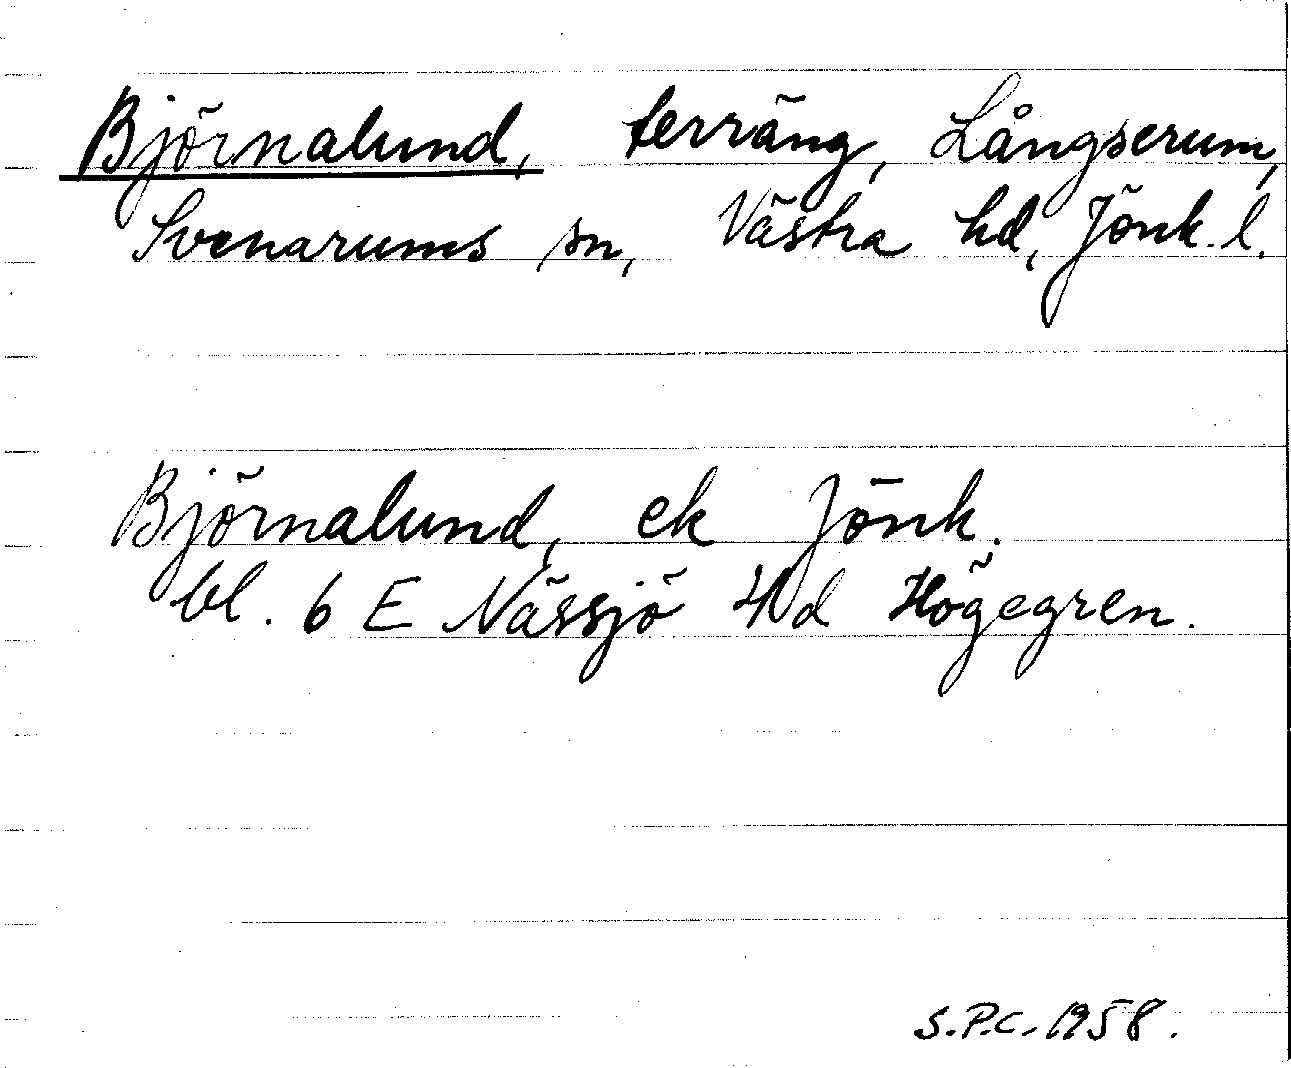 Björnalund, terräng, Långserum,
Svenarums sn, Västra hd, Jönk. l.
Björnalund, ek Jönk.
bl. 6 E Nässjö 4 d Högegren.
S.P.C. 1958.